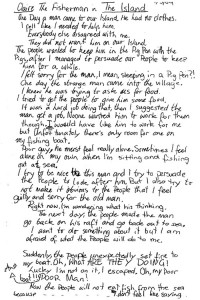 Dare The Fisherman in The Island
One Day a man came to our Island. He had no clothes.
I felt like I needed to help him.
Everybody else disagreed with me.
They did not want him on our Island.
The people wanted to keep him in the Pig Pen with the
Pigs, after I managed to persuade our People to keep
him for a while.
I felt sorry for the man, I mean, sleeping in a Pig Pen?!
One day the strange man came into the village.
I knew he was trying to ask us for food.
I tried to get the people to give him some food.
It was a hard job doing that, then I suggested the
man got a job. Noone wanted him to work for them
though. I would have like him to work for me
but unfortunately there's only room for one on
my fishing boat.
Poor guy. He must feel really alone. Sometimes I feel
alone on my own when I'm sitting and fishing
out at sea.
I try to be nice to this man and I try to persuade
the People to look after him. But I also try to
not make it obvious to the People that I feel
guilty and sorry for the old man.
Right now, I'm wondering what his thinking.
The next days the people made the man
go back on his raft and go back out to sea.
I want to do something about it but I am
afraid of what the People will do to me.
Suddenly the People unexpectedly set fire to
my boat. Oh, What ARE THEY DOING
Lucky I'm not on it, I escaped. Oh, my poor
boat
Now the People will not eat fish from the sea
because I don't feel like